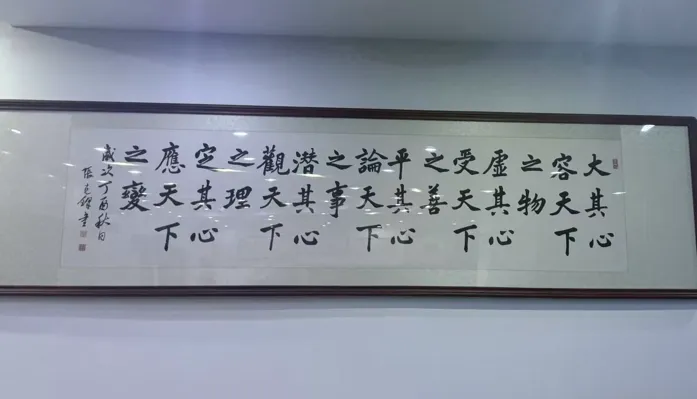 大其心
容天下
之物
虛其心
受天下
之善
平其心
論天下
之事
潛其心
觀天下
之理
定其心
應天下
之變
歲次丁酉秋月
書